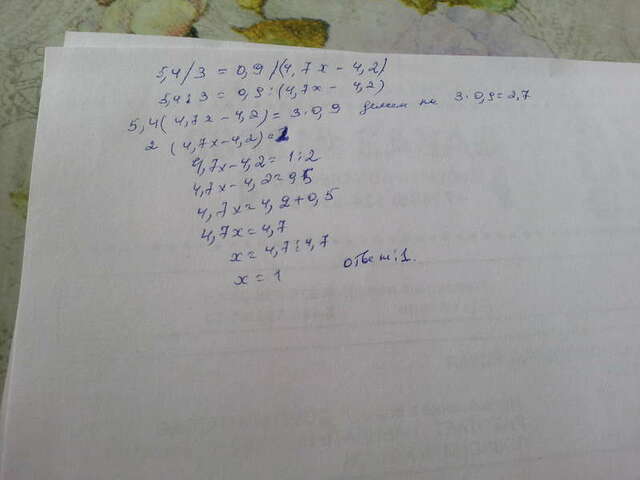 5,4/3 = 0,9/(4,7x - 4,2)
5,4:3 = 0,9:(4,7x - 4,2)
5,4(4,7x - 4,2) = 3·0,9 делим на 3·0,9=2,7
2 (4,7x-4,2)=1
4,7x-4,2= 1:2
4,7x-4,2=0,5
4,7x=4,2+0,5
4,7x=4,7
x=4,7:4,7
x=1 ответ:1.